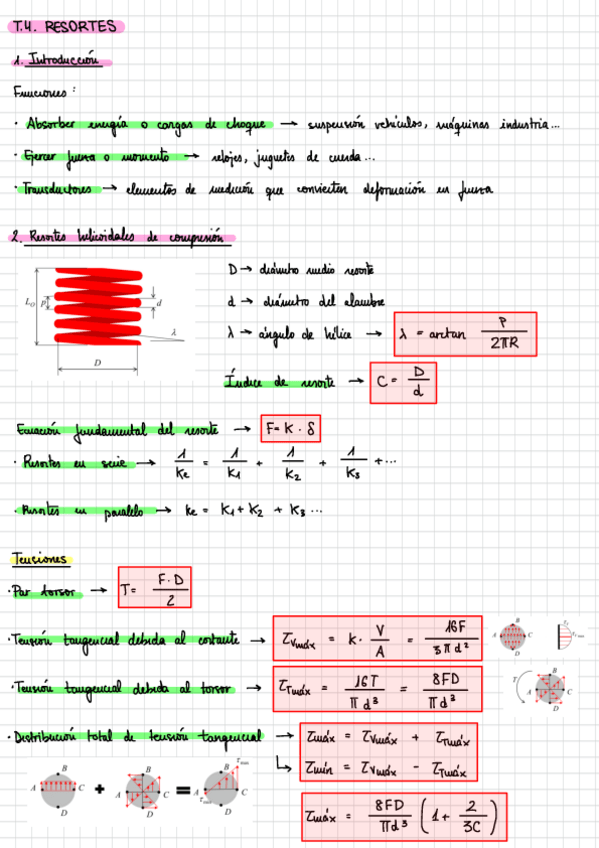 T.4. RESORTES
1. Introducción
Funciones:
· Absorber energía o cargas de choque → suspensión vehículos, máquinas industria...
· Ejercer fuerza o momento → relojes, juguetes de cuerda...
· Transductores → elementos de medición que convierten deformación en fuerza
2. Resortes helicoidales de compresión
L₀ p d λ D
D → diámetro medio resorte
d → diámetro del alambre
λ → ángulo de hélice → λ = arctan P / 2πR
Índice de resorte → C = D / d
Ecuación fundamental del resorte → F = K · δ
· Resortes en serie → 1/Ke = 1/K1 + 1/K2 + 1/K3 + ...
· Resortes en paralelo → Ke = K1 + K2 + K3 ...
Tensiones
· Par torsor → T = F·D / 2
· Tensión tangencial debida al cortante → τVmáx = k · V/A = 16F / 3πd²
A B C D
· Tensión tangencial debida al torsor → τTmáx = 16T / πd³ = 8FD / πd³
T A B C D
· Distribución total de tensión tangencial → τmáx = τVmáx + τTmáx
↳ τmín = τVmáx - τTmáx
A B C D + A B C D = A B C D τmax
τmáx = 8FD / πd³ (1 + 2/3C)